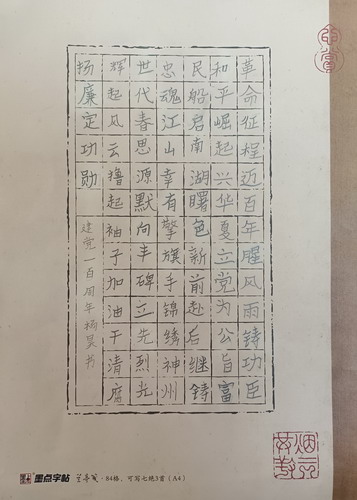 革命征程近百年腥风雨铸功臣
和平崛起兴华夏立党为公旨富
民船启南湖曙色新前赴后继铸
忠魂江山幸有擎旗手锦绣神州
世代春思源默向丰碑立先烈光
辉起风云撸起袖子加油干清腐
扬廉定功勋
建党一百周年杨昊书
墨点字帖 ·84格，可写七绝3首（A4）